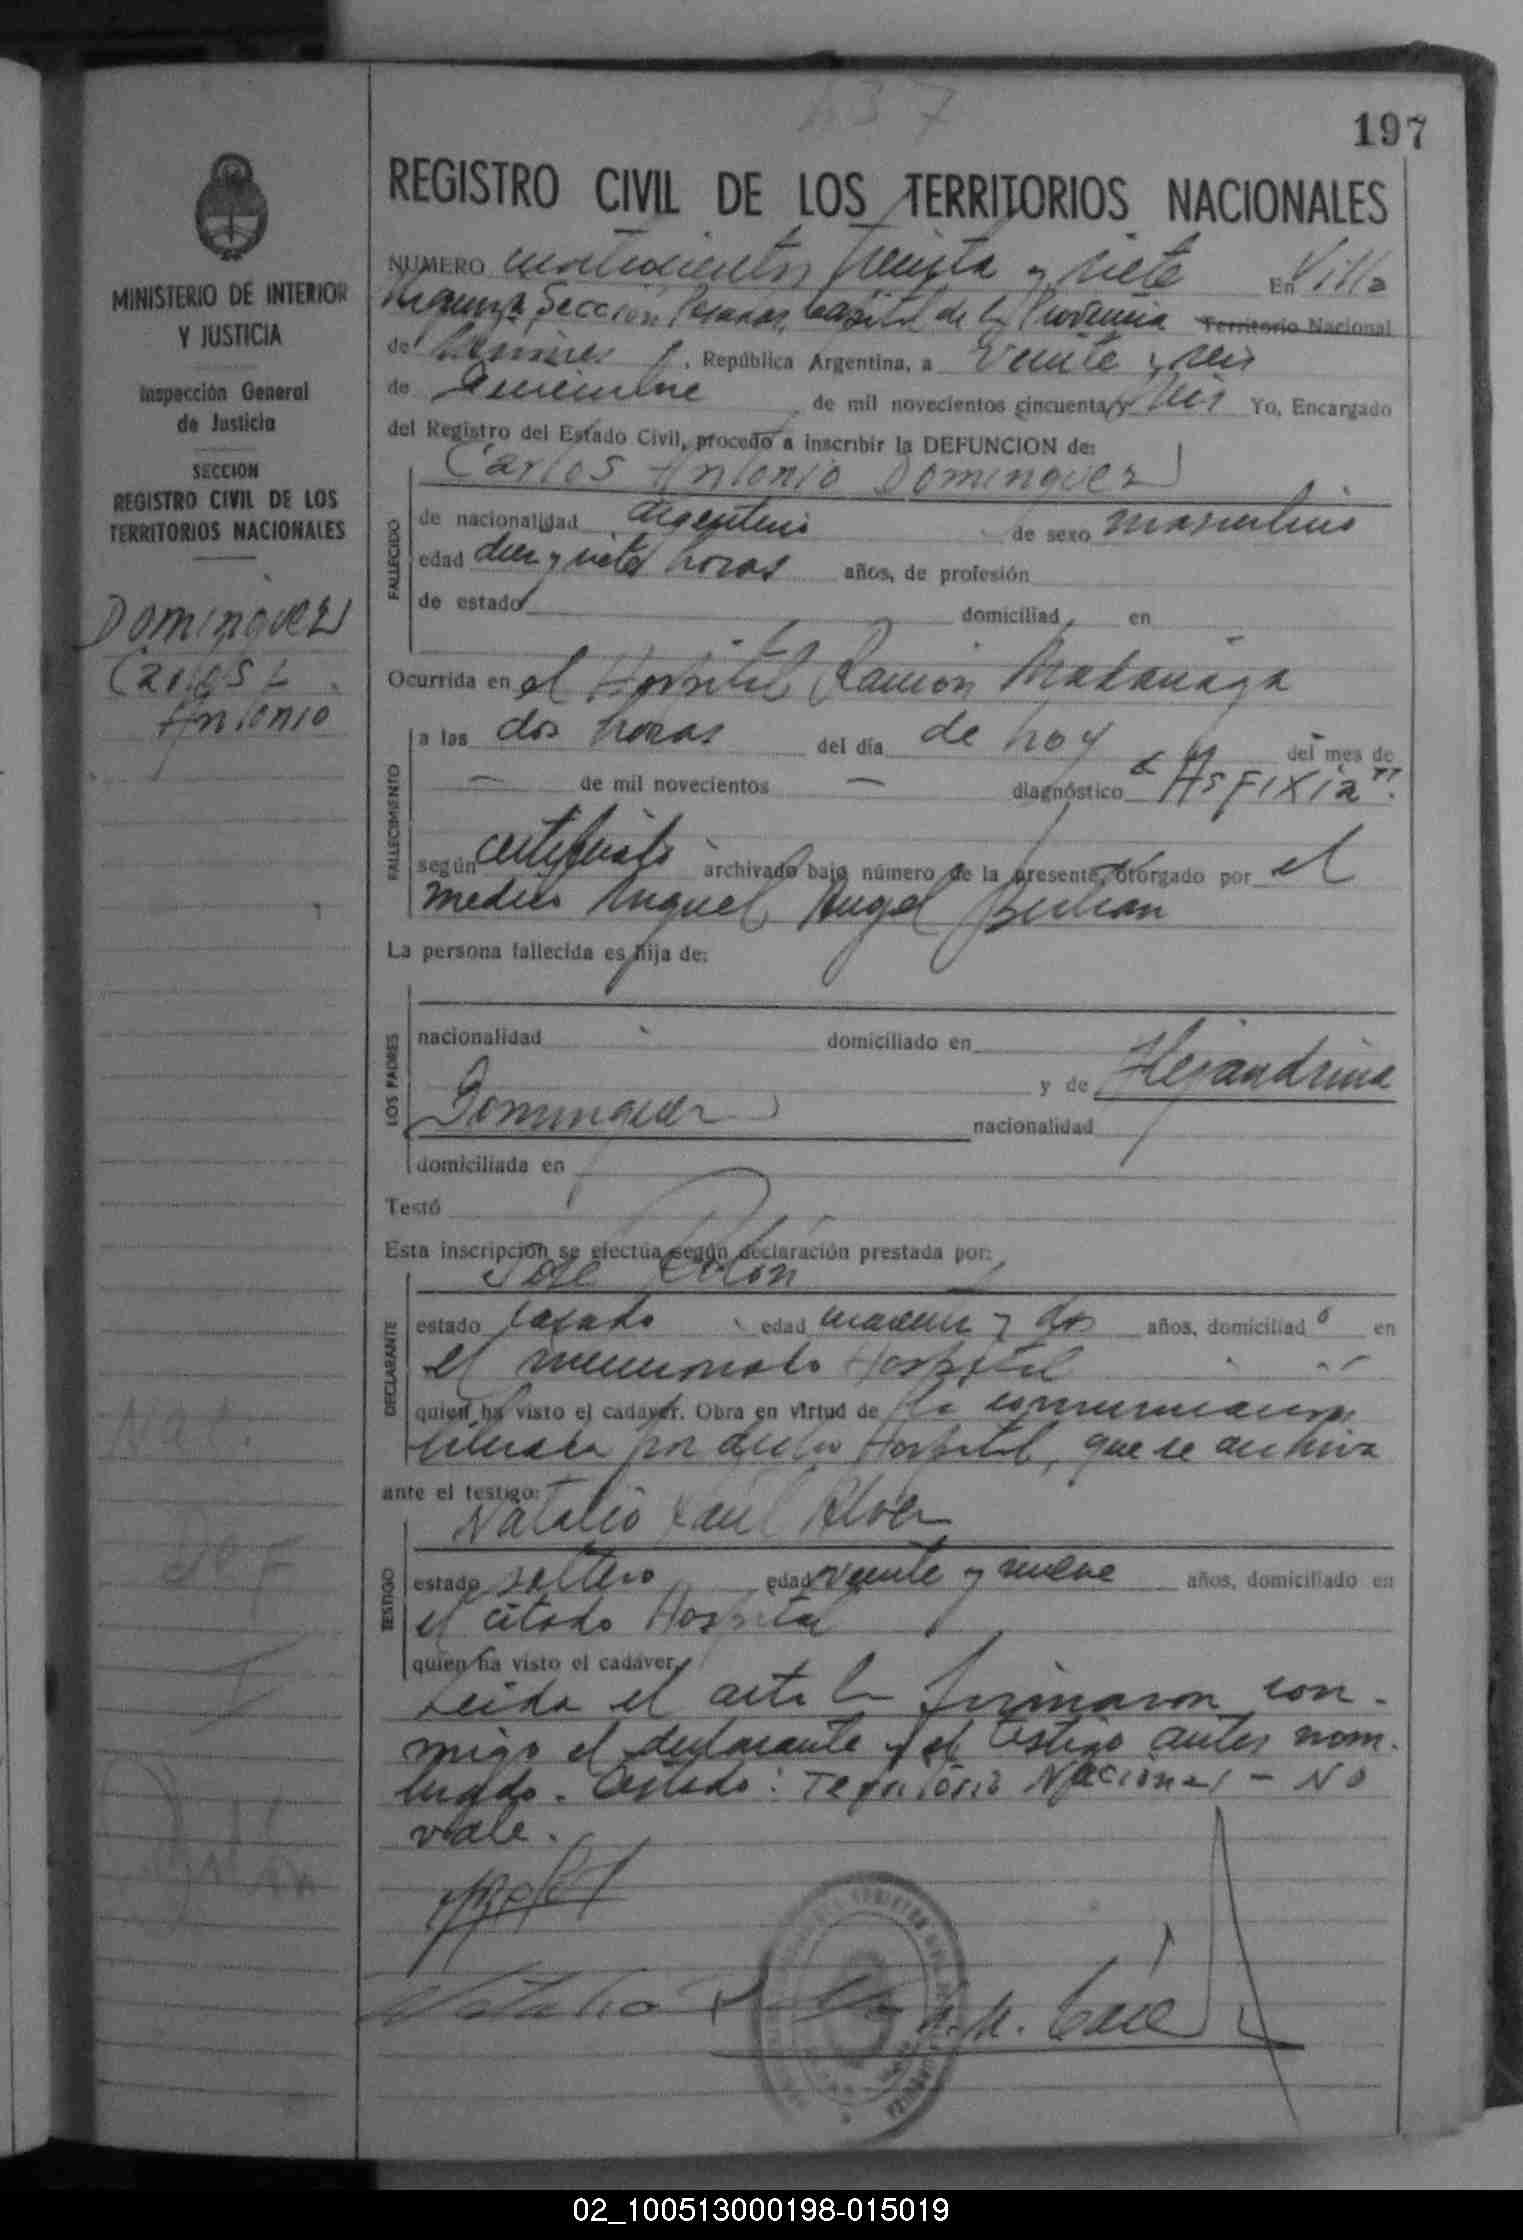 437
197
REGISTRO CIVIL DE LOS TERRITORIOS NACIONALES
MINISTERIO DE INTERIOR
Y JUSTICIA
Inspección General
de Justicia
SECCION
REGISTRO CIVIL DE LOS
TERRITORIOS NACIONALES
Dominguez
Carlos
Antonio
Nac.
Def
NUMERO cuatrocientos treinta y siete En Villa
Urquiza, Sección Posadas, Capital de la Provincia Territorio Nacional
de Misiones, República Argentina, a veinte y seis
de Diciembre de mil novecientos cincuenta y seis Yo, Encargado
del Registro del Estado Civil, procedo a inscribir la DEFUNCION de:
Carlos Antonio Dominguez
FALLECIDO
de nacionalidad argentino de sexo masculino
edad diez y siete horas años, de profesión
de estado domiciliad en
Ocurrida en el Hospital Ramón Madariaga
FALLECIMIENTO
a las dos horas del día de hoy del mes de
— de mil novecientos — diagnóstico "Asfixia".
según certificado archivado bajo número de la presente, otorgado por el
medico Miguel Angel
La persona fallecida es hija de:
LOS PADRES
nacionalidad domiciliado en
y de Alejandrina
Dominguez nacionalidad
domiciliada en
Testó
Esta inscripción se efectúa según declaración prestada por:
José
DECLARANTE
estado casado edad cuarenta y dos años, domiciliado en
el mencionado Hospital
quien ha visto el cadáver. Obra en virtud de la comunicación
librada por dicho Hospital, que se archiva
ante el testigo:
Natalio Raúl Alvez
TESTIGO
estado soltero edad veinte y nueve años, domiciliado en
el citado Hospital
quien ha visto el cadáver.
Leida el acta la firmaron con-
migo el declarante y el testigo antes nom-
brado. Testado: Territorio Nacional - No
vale.
Natalio R.
02_100513000198-015019